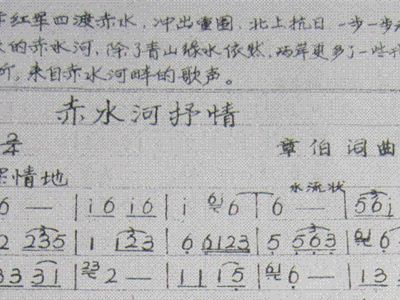 红军四渡赤水，冲出重围，北上抗日一步一步
的赤水河，除了青山绿水依然，两岸更多了一些
所，来自赤水河畔的歌声。
赤水河抒情
章伯 词曲
情地
水流状
6 — | i 6 i 6 | i 6 | 6 | 5 6 i
2 2 3 5 | 1 1 2 3 | 6 6 1 2 3 | 5 5 6 3 |
3 3 3 1 | 2 — | 1 1 1 5 | 6 — | 1 3